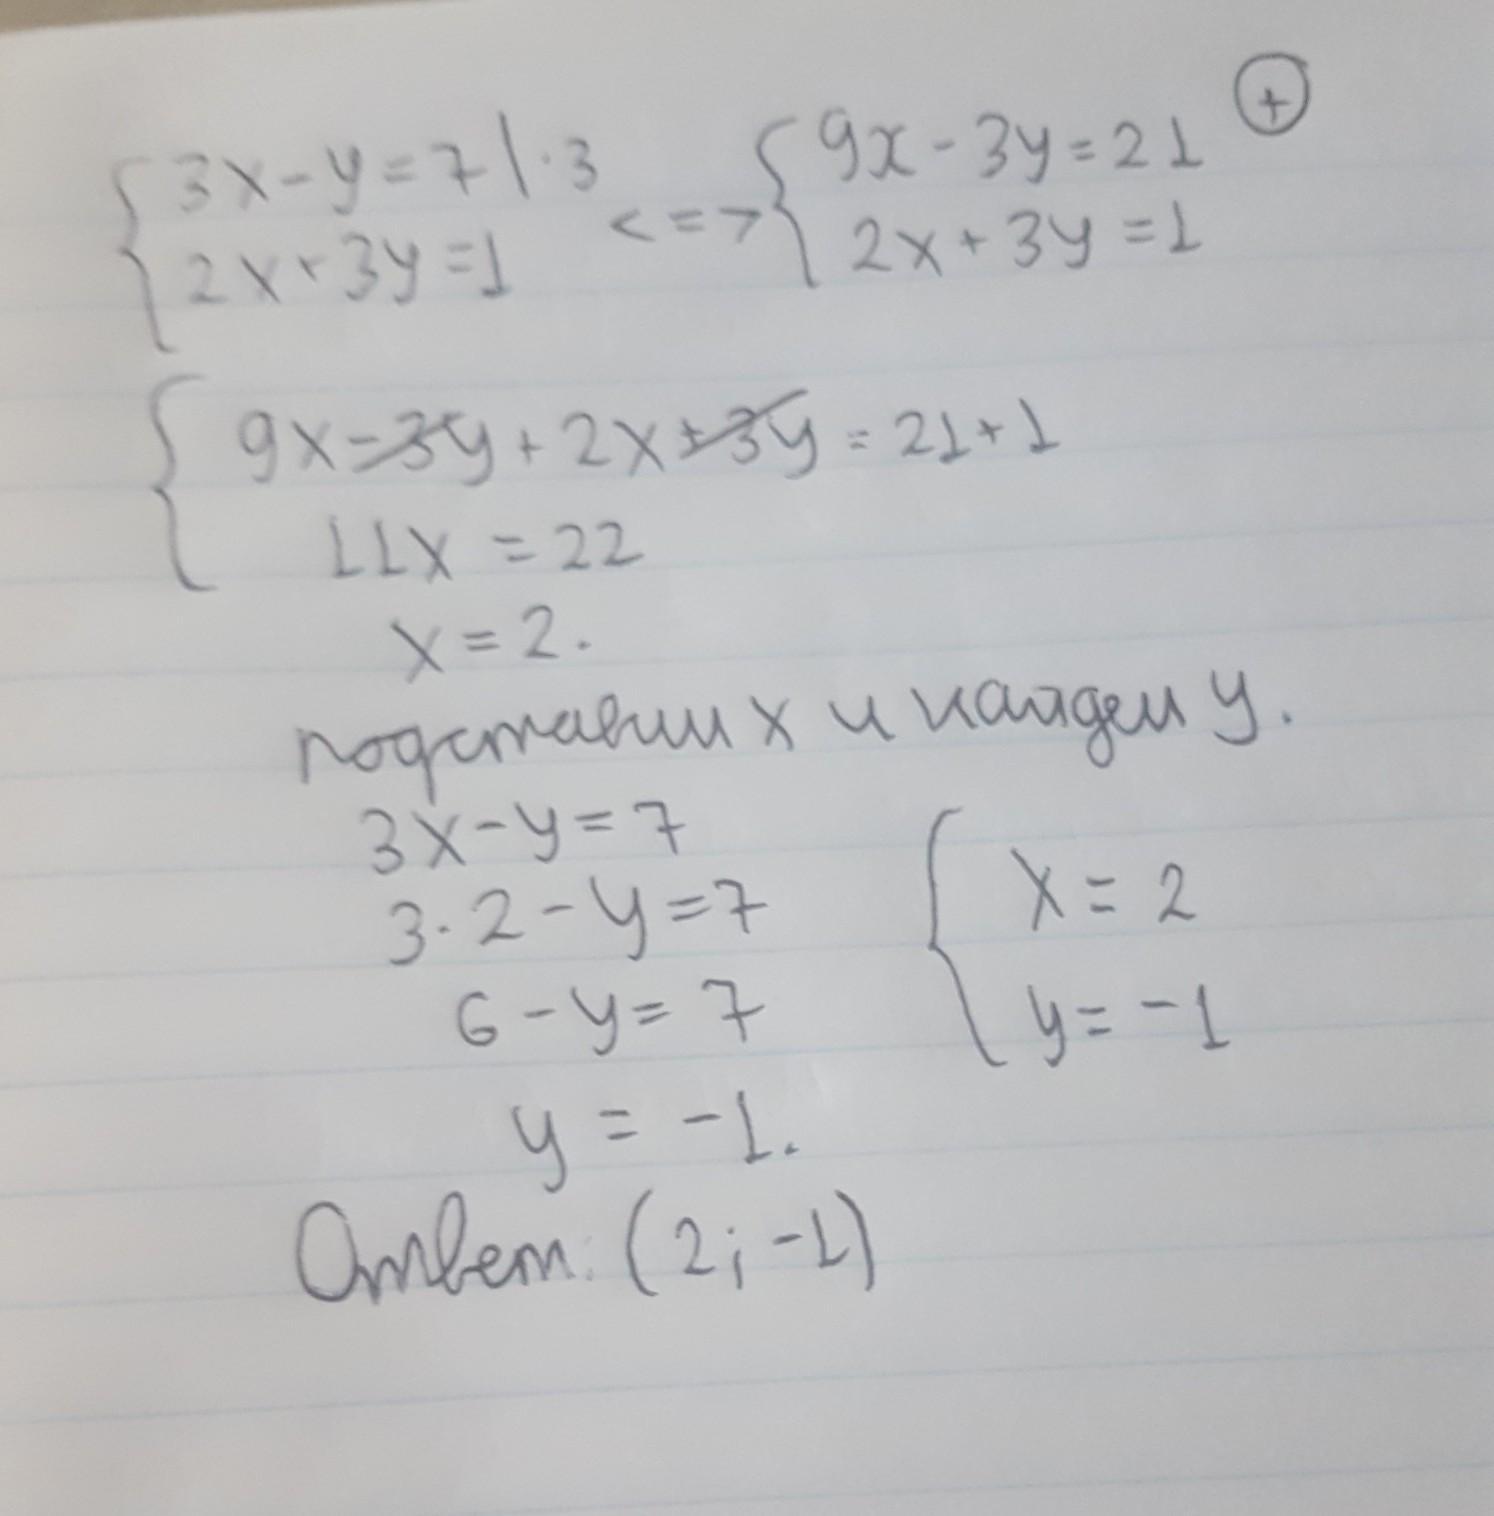 {3x-y=7|·3 <=> {9x-3y=21 ⊕
2x+3y=1 2x+3y=1
{9x-3y+2x+3y=21+1
11x=22
x=2.
подставим x и найдем y.
3x-y=7
3·2-y=7 {x=2
6-y=7 y=-1
y=-1.
Ответ: (2;-1)